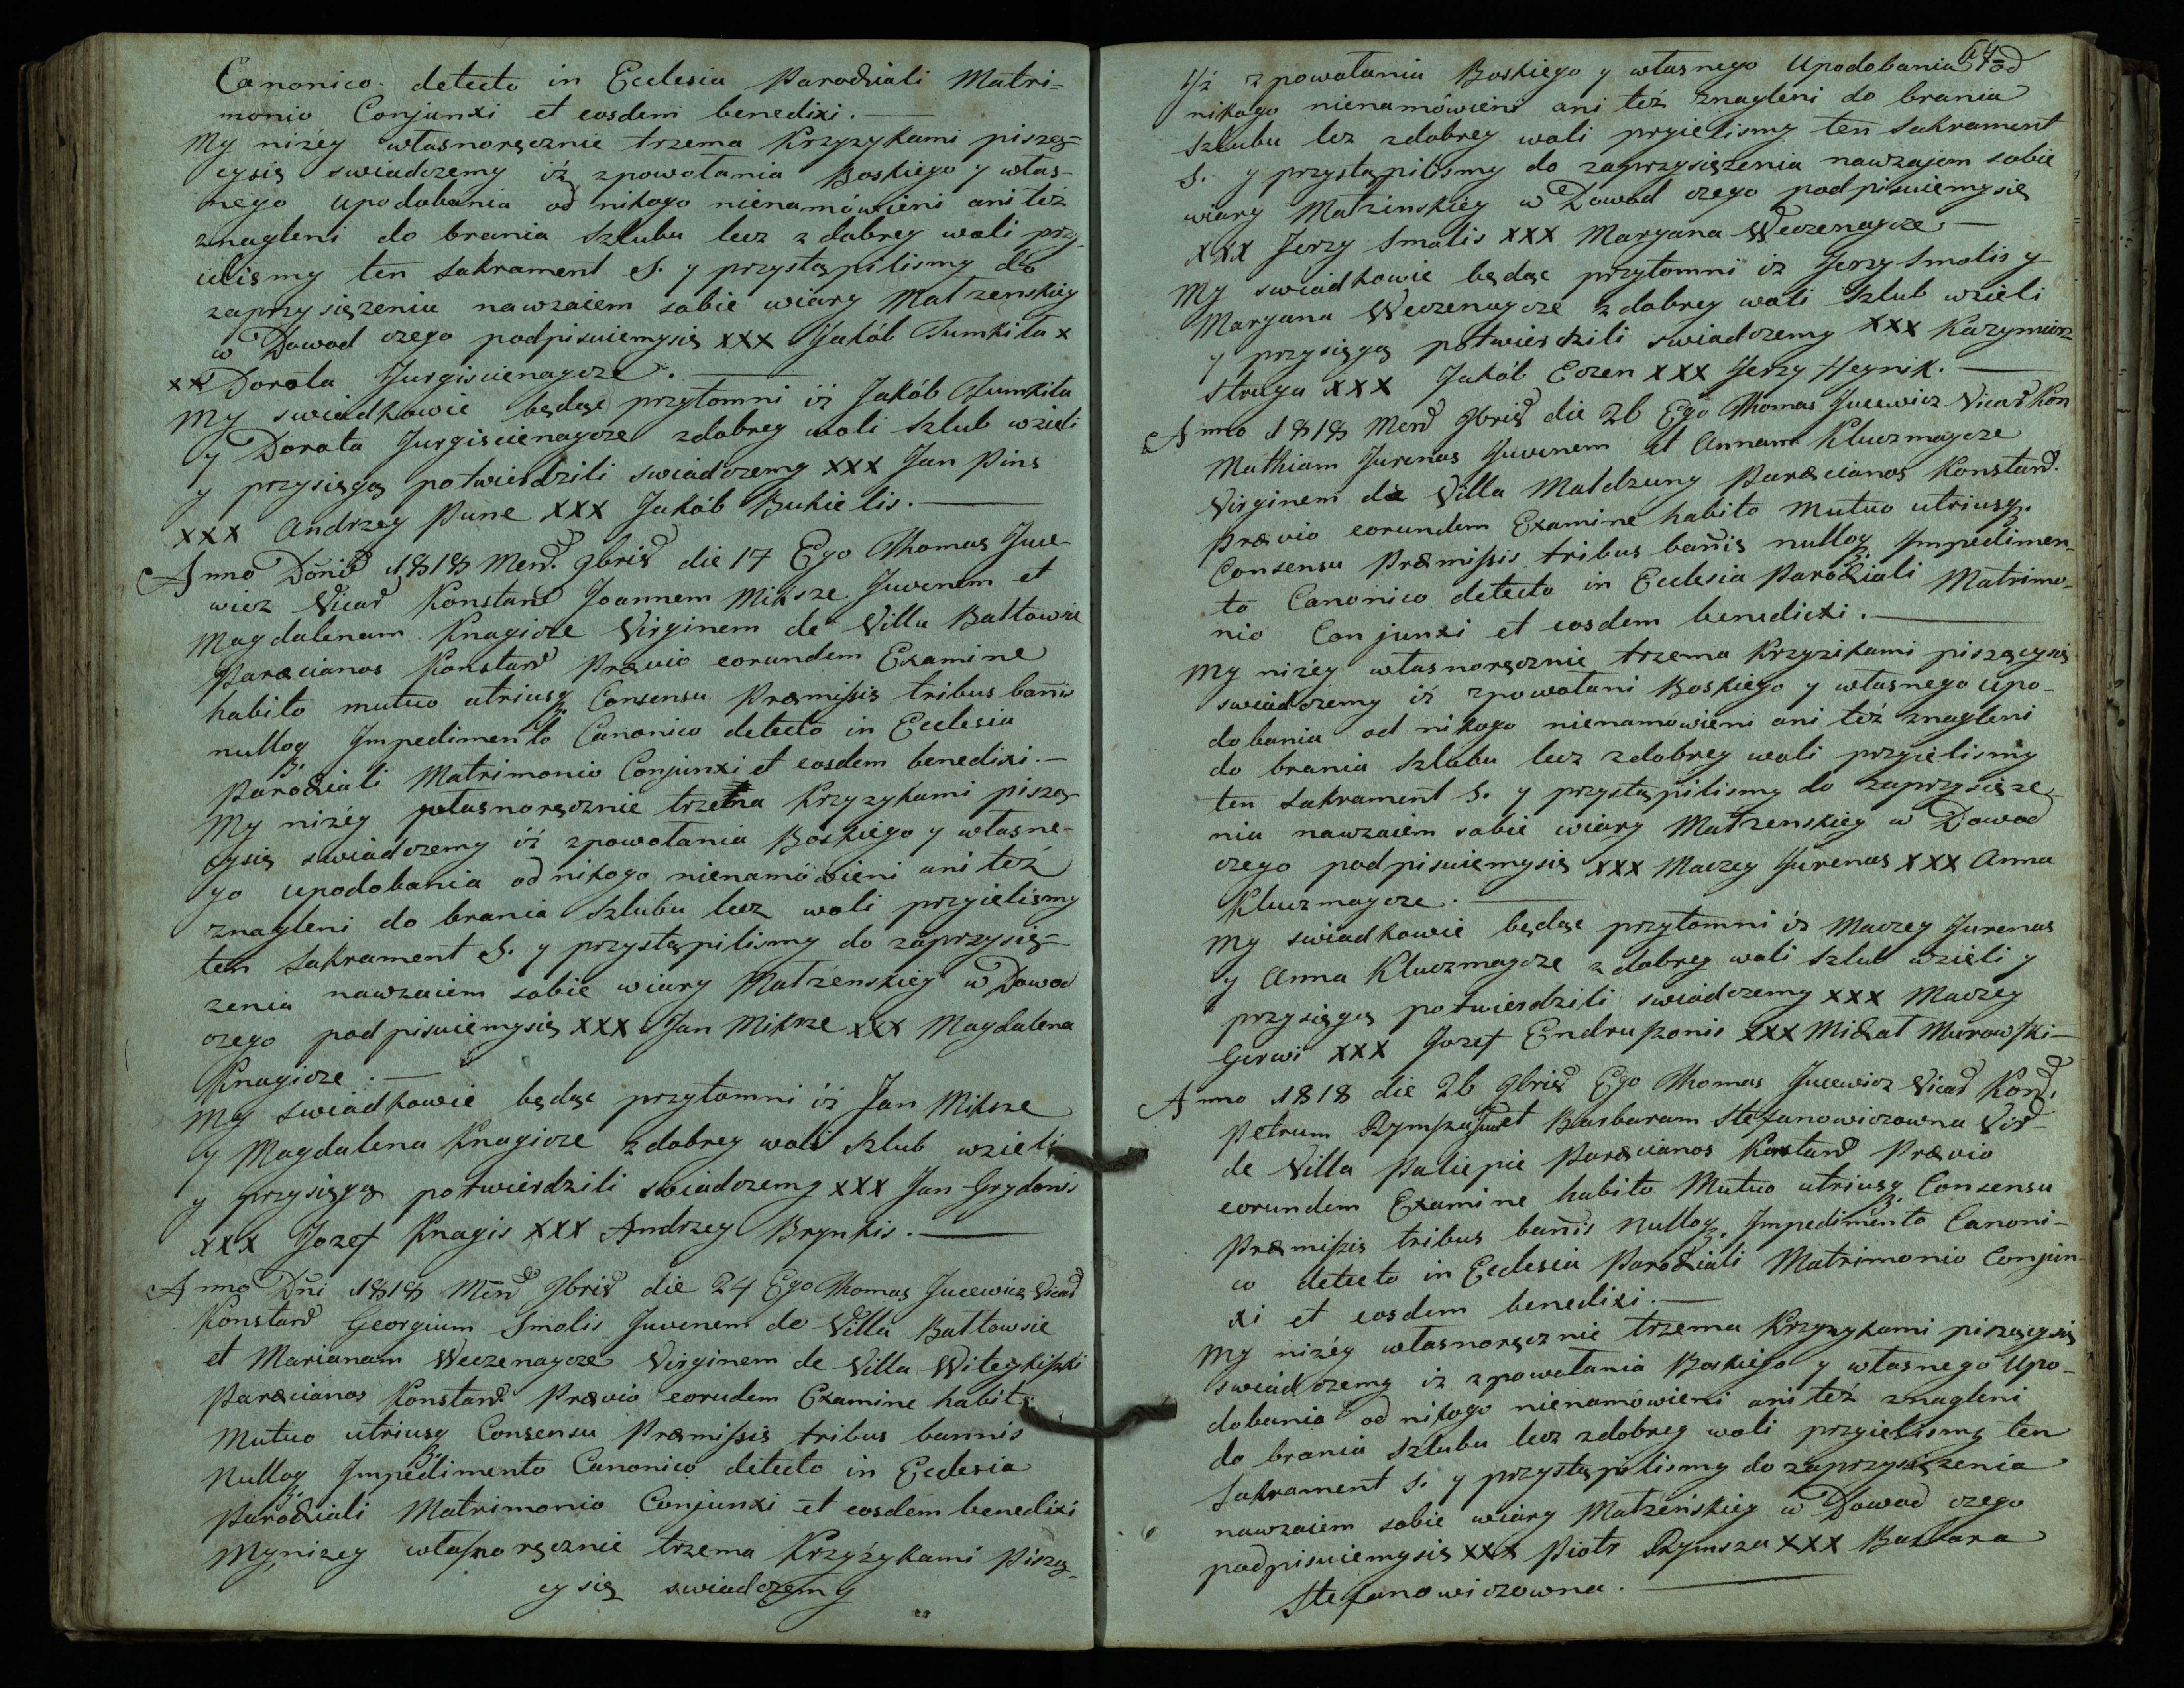 Canonico detecto in Ecclesia Parochiali Matri-
monio Conjunxi et eosdem benedixi.
My niżéy własnoręcznie trzema Krzyzykami pisząc=
cysię swiadczemy iż zpowołania Boskiego y włas-
nego upodobania od nikogo nienamówieni ani też
znagleni do brania Szlubu lecz z dobrey woli przy
ielismy ten Sakrament S. y przystąpilismy do
zaprzysięzenia nawzaiem sobie wiary Małzenskiey
w Dowod czego podpisuiemysię xxx Jakób Tumkiła x
xx Dorota Jurgiscienaycze.
My swiadkowie będąc przytomni iż Jakób Tumkiła
y Dorota Jurgiscienaycze zdobrey woli szlub wzieli
y przysięgą potwierdzili swiadczemy xxx Jan Pins
xxx Andrzey Pune xxx Jakób Bukielis.
Anno Dōni 1818 Mens. 9bris die 17 Ego Thomas Juce-
wicz Vicar Konstand Joannem Miksze Juvenem et
Magdalenam Knagicze Virginem de Villa Bałtowsie
Paræcianos Konstand Prævio eorundem Examine
habito mutuo utriusq. Consensu Præmissis tribus bañis
nulloq. Impedimento Canonico detecto in Ecclesia
Parochiali Matrimonio Conjunxi et eosdem benedixi.
My niżéy własnoręcznie trzema Krzyzykami piszą-
cysię swiadczemy iż zpowołania Boskiego y własne-
go upodobania od nikogo nienamówieni ani też
znagleni do brania szlubu lecz woli przyielismy
ten Sakrament S. y przystąpilismy do zaprzysię=
zenia nawzaiem sobie wiary Małżenskiey w Dowod
czego podpisuiemysię xxx Jan Miksze xxx Magdalena
Knagicze.
My swiadkowie będąc przytomni iż Jan Miksze
y Magdalena Knagicze zdobrey woli szlub wzieli
y przysięgą potwierdzili swiadczemy xxx Jan Grydonis
xxx Jozef Knagis xxx Andrzey Brynkis.
Anno Dñi 1818 Mens 9bris die 24 Ego Thomas Jucewicz Vicar
Konstand Georgium Smolis Juvenem de Villa Bałtowsie
et Marianam Weczenaycze Virginem de Villa Witeykiszki
Paræcianos Konstand Prævio eorudem Examine habito
Mutuo utriusq. Consensu Præmissis tribus bannis
Nulloq. Impedimento Canonico detecto in Ecclesia
Parochiali Matrimonio Conjunxi et eosdem benedixi
My nizey własnoręcznie trzema Krzyżykami Pisząc-
cysię swiadczemy
64
iż z powołania Boskiego y własnego Upodobania od
nikogo nienamówieni ani też znagleni do brania
Szlubu lez zdobrey woli pryielismy ten Sakrament
S. y przystąpilismy do zaprzysięzenia nawzajem sobie
wiary Małzinskiey w Dowod czego podpisuiemysię
xxx Jerzy Smalis xxx Maryana Weczenaycze
My swiadkowie będąc przytomni iz Jerzy Smolis y
Maryana Weczenaycze zdobrey woli Szlub wzieli
y przysięgą potwierdzili swiadczemy xxx Kazymierz
Struga xxx Jakób Eczen xxx Jerzy Heynik.
Anno 1818 Mens 9bris die 26 Ego Thomas Jucewicz Vicar Kon
Mathiam Jurenas Juvenem et Annam Kluczmaycze
Virginem de Villa Małdzuny Paræcianos Konstand.
Prævio eorundem Examine habito Mutuo utriusq.
Consensu Præmissis tribus bañis nulloq. Impedimen-
to Canonico detecto in Ecclesia Parochiali Matrimo-
nio Conjunxi et eosdem benedicxi.
My niżéy własnoręcznie trzema Krzyzikami piszącysię
swiadczemy iż zpowołani Boskiego y własnego upo-
dobania od nikogo nienamówieni ani też znagleni
do brania szlubu lecz zdobrey woli przyielismy
ten sakrament S. y przystąpilismy do zaprzysięze-
nia nawzaiem sobie wiary Małzenskiey w Dowod
czego podpisuiemysię xxx Maczey Jurenas xxx Anna
Kluczmaycze.
My swiadkowie będąc przytomni iz Maczey Jurenas
y Anna Kluczmaycze zdobrey woli Szlub wzieli y
przysięgą potwierdzili swiadczemy xxx Maczey
Gerwi xxx Jozef Endruszonis xxx Michał Murowski
Anno 1818 die 26 9bris Ego Thomas Jucewicz Vicar Kons.
Petrum Rympsza Juv et Barbaram Stefanowiczowna Vir
de Villa Paliepie Paræcianos Konstand Prævio
eorundem Examine habito Mutuo utriusq. Consensu
Præmissis tribus bañis Nulloq. Impedimento Canoni-
co detecto in Ecclesia Parochiali Matrimonio Conjun-
xi et eosdem benedixi.
My niżéy własnoręcznie trzema Krzyzykami piszącysię
swiadczemy iz zpowołania Boskiego y własnego Upo-
dobania od nikogo nienamówieni ani też znagleni
do brania Szlubu lecz zdobrey woli przyielismy ten
Sakrament S. y przystąpilismy do zaprzysięzenia
nawzaiem sobie wiary Małzeńskiey w Dowod czego
podpisuiemysię xxx Piotr Rymsza xxx Barbara
Stefanowiczowna.